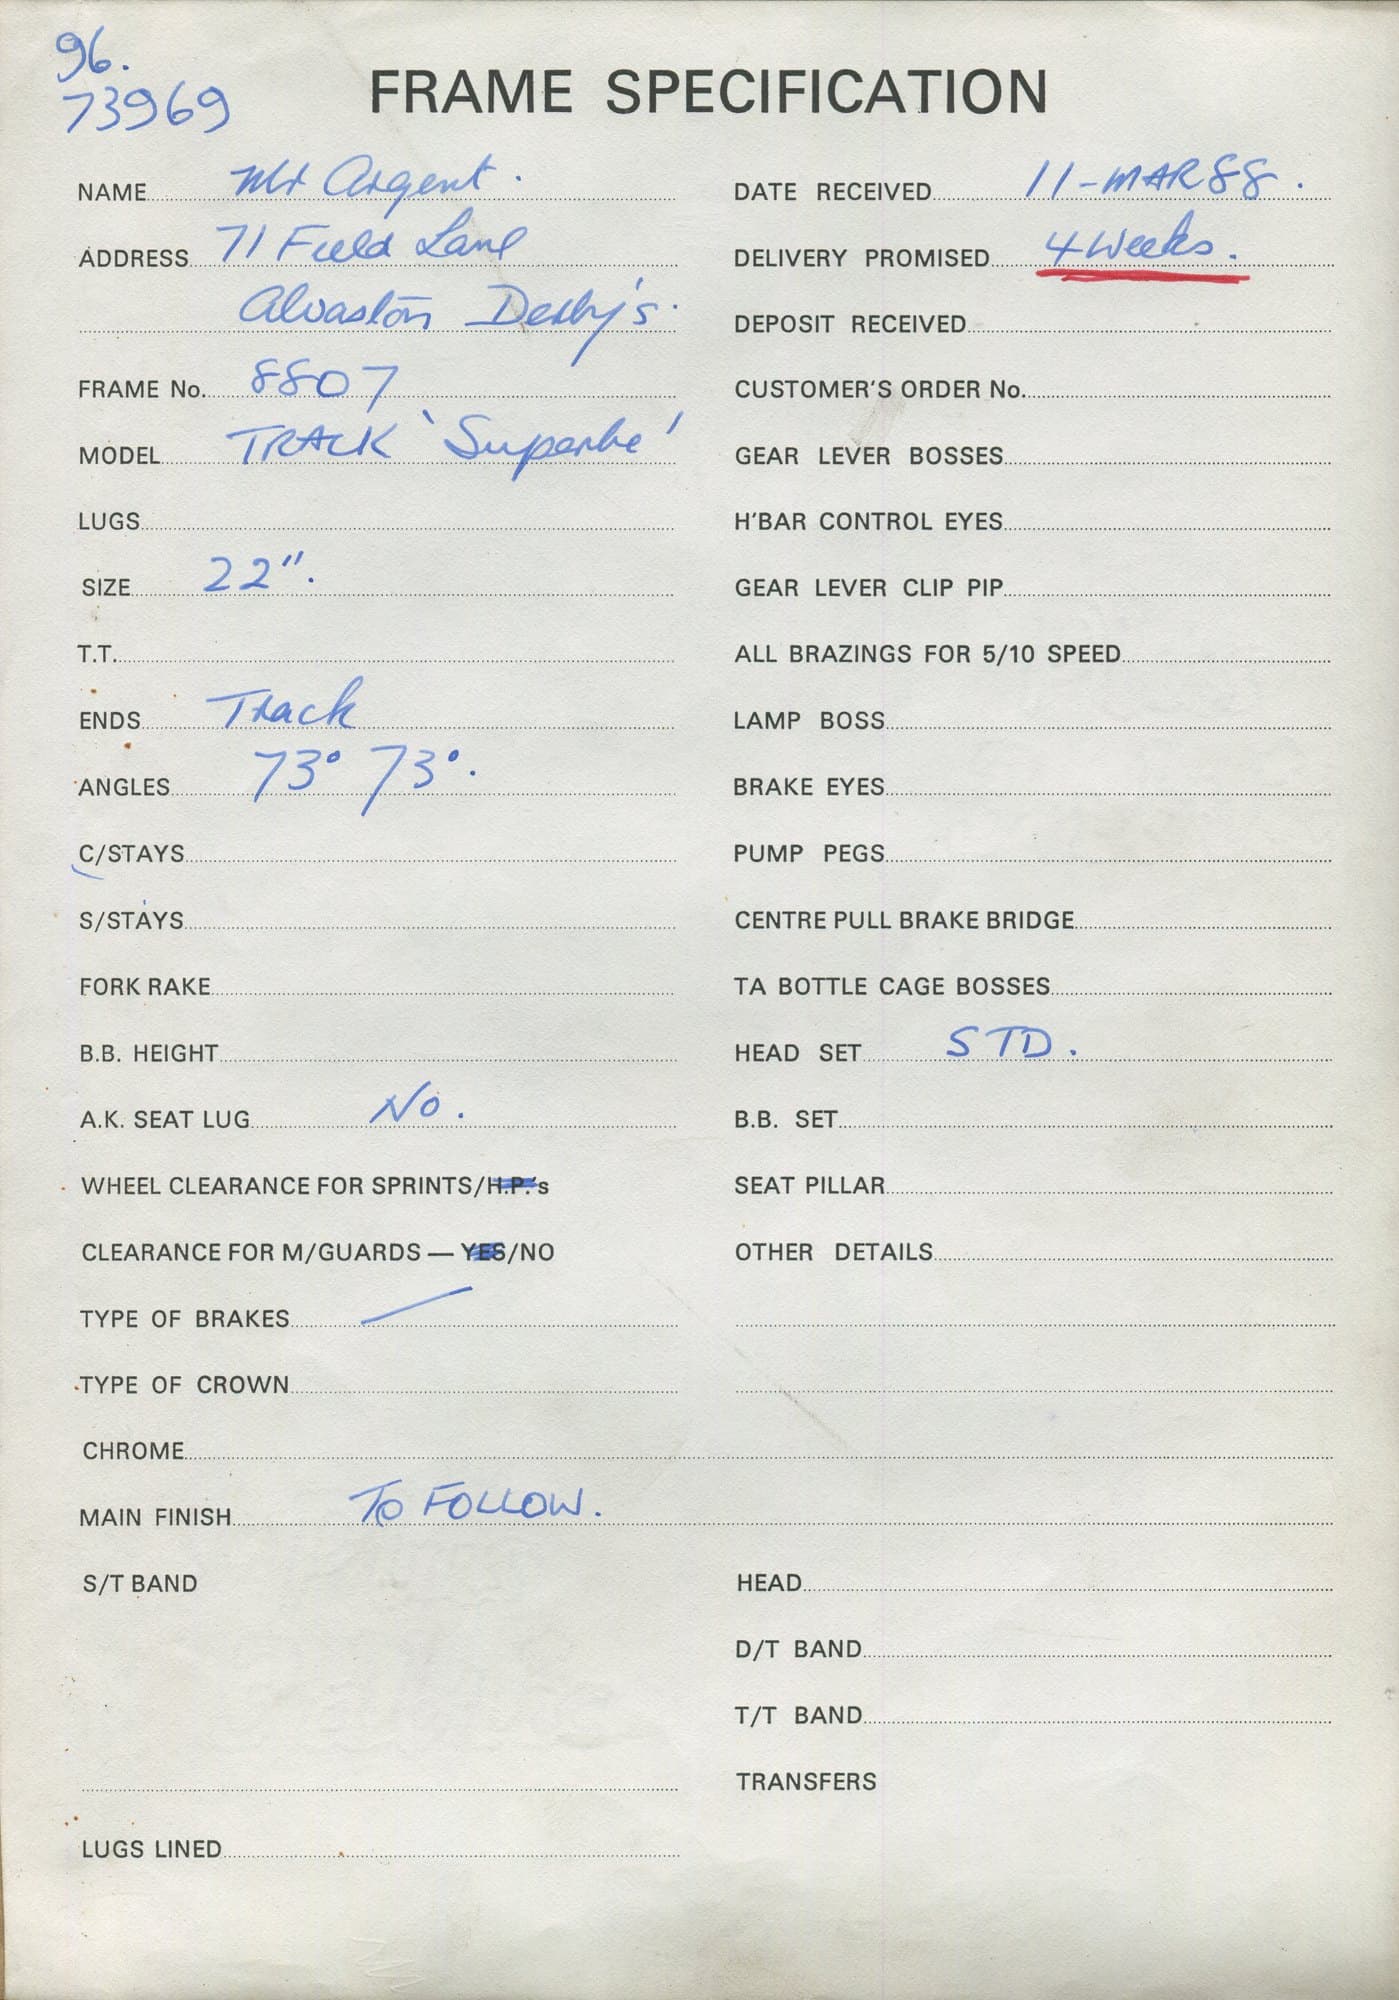 96.
73969
FRAME SPECIFICATION
NAME Mr Argent.
ADDRESS 71 Field Lane
Alvaston Derby's.
FRAME No. 8807
MODEL TRACK 'Superbe'
LUGS
SIZE 22".
T.T.
ENDS Track
ANGLES 73° 73°.
C/STAYS
S/STAYS
FORK RAKE
B.B. HEIGHT
A.K. SEAT LUG No.
WHEEL CLEARANCE FOR SPRINTS/H.P.'s
CLEARANCE FOR M/GUARDS — YES/NO
TYPE OF BRAKES
TYPE OF CROWN
DATE RECEIVED 11-MAR 88.
DELIVERY PROMISED 4 Weeks.
DEPOSIT RECEIVED
CUSTOMER'S ORDER No.
GEAR LEVER BOSSES
H'BAR CONTROL EYES
GEAR LEVER CLIP PIP
ALL BRAZINGS FOR 5/10 SPEED
LAMP BOSS
BRAKE EYES
PUMP PEGS
CENTRE PULL BRAKE BRIDGE
TA BOTTLE CAGE BOSSES
HEAD SET STD.
B.B. SET
SEAT PILLAR
OTHER DETAILS
CHROME
MAIN FINISH TO FOLLOW.
S/T BAND
LUGS LINED
HEAD
D/T BAND
T/T BAND
TRANSFERS